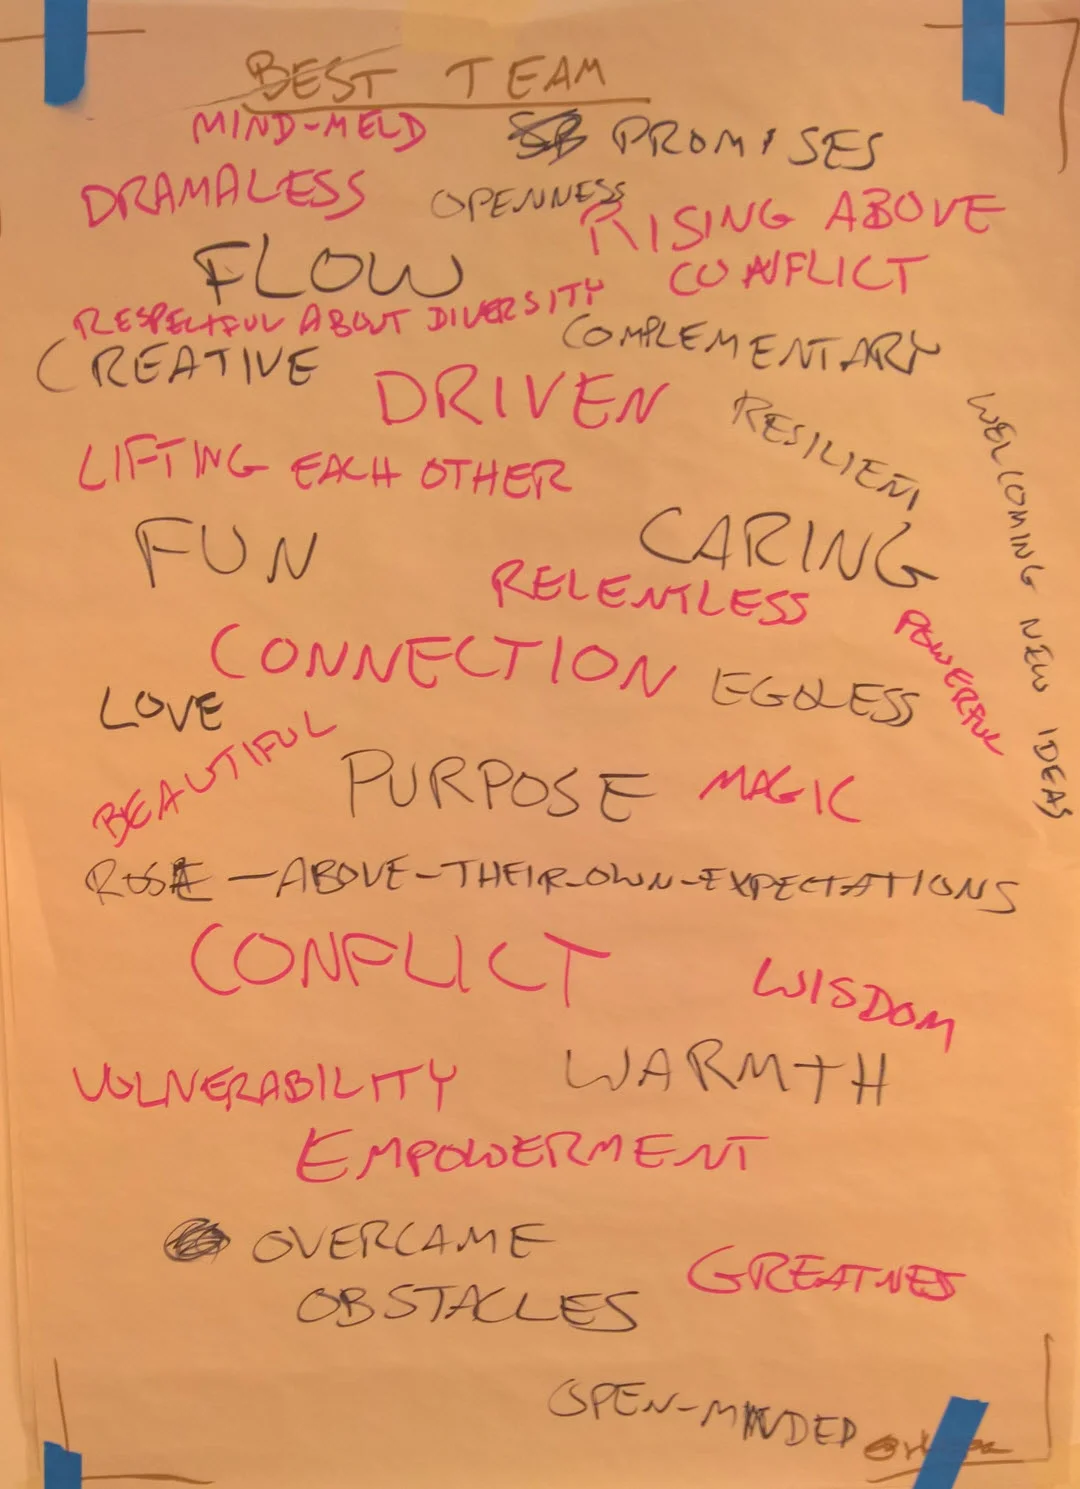 BEST TEAM
MIND-MELD
PROMISES
DRAMALESS
OPENNESS
RISING ABOVE
CONFLICT
FLOW
RESPECTFUL ABOUT DIVERSITY
COMPLEMENTARY
CREATIVE
DRIVEN
RESILIENT
WELCOMING NEW IDEAS
LIFTING EACH OTHER
FUN
CARING
RELENTLESS
POWERFUL
CONNECTION
EGOLESS
LOVE
BEAUTIFUL
PURPOSE
MAGIC
ROSE-ABOVE-THEIR-OWN-EXPECTATIONS
CONFLICT
WISDOM
VULNERABILITY
WARMTH
EMPOWERMENT
OVERCAME
OBSTACLES
GREATNES
OPEN-MINDED